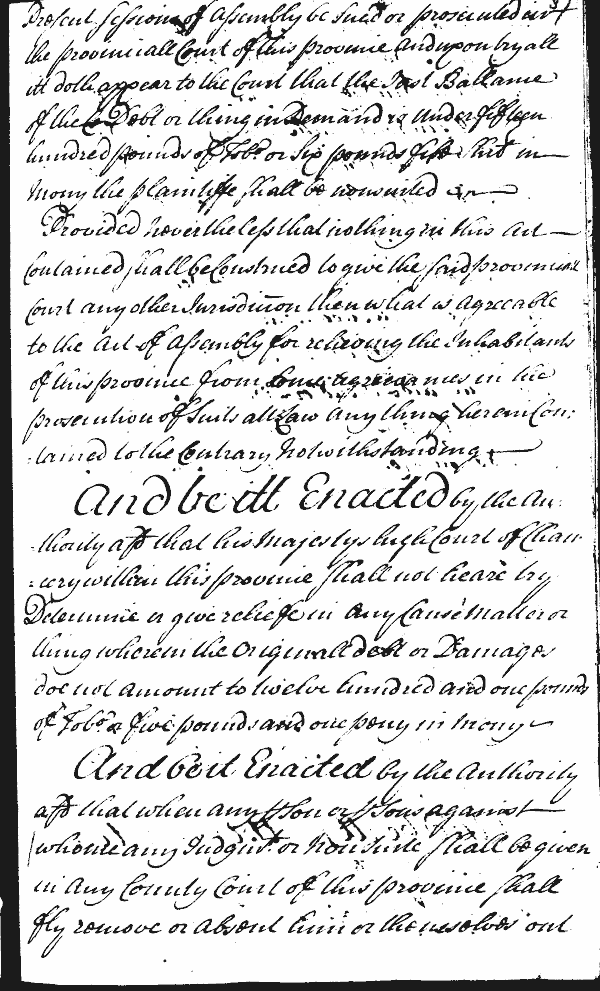 Present sessions of Assembly be sued or prosecuted in
the provinciall Court of this province and upon tryall
itt doth appear to the Court that the Just Ballance
of the Debt or thing in Demand is under fifteen
hundred pounds of Tobo or Six pounds five shill in
mony the plaintiffe shall be nonsuited
Provided neverthelesse that nothing in this Act
Contained shall be Construed to give the said provinciall
Court any other Jurisdiccon then what is agreeable
to the Act of Assembly for relieving the Inhabitants
of this province from some agreevances in the
prosecution of Suits att Law any thing herein Con:
:tained to the Contrary Notwithstanding
And be itt Enacted by the Au:
:thority afd that his Majestys high Court of Chan:
:cery within this province shall not heare try
Determine or give reliefe in any Cause matter or
thing wherein the Originall debt or Damages
doe not amount to twelve hundred and one pounds
of Tobo or five pounds and one peny in mony
And be it Enacted by the Authority
afd that when any pson or psons against
whome any Judgmt or Nonsuite shall be given
in any County Court of this province shall
fly remove or absent him or themselves out